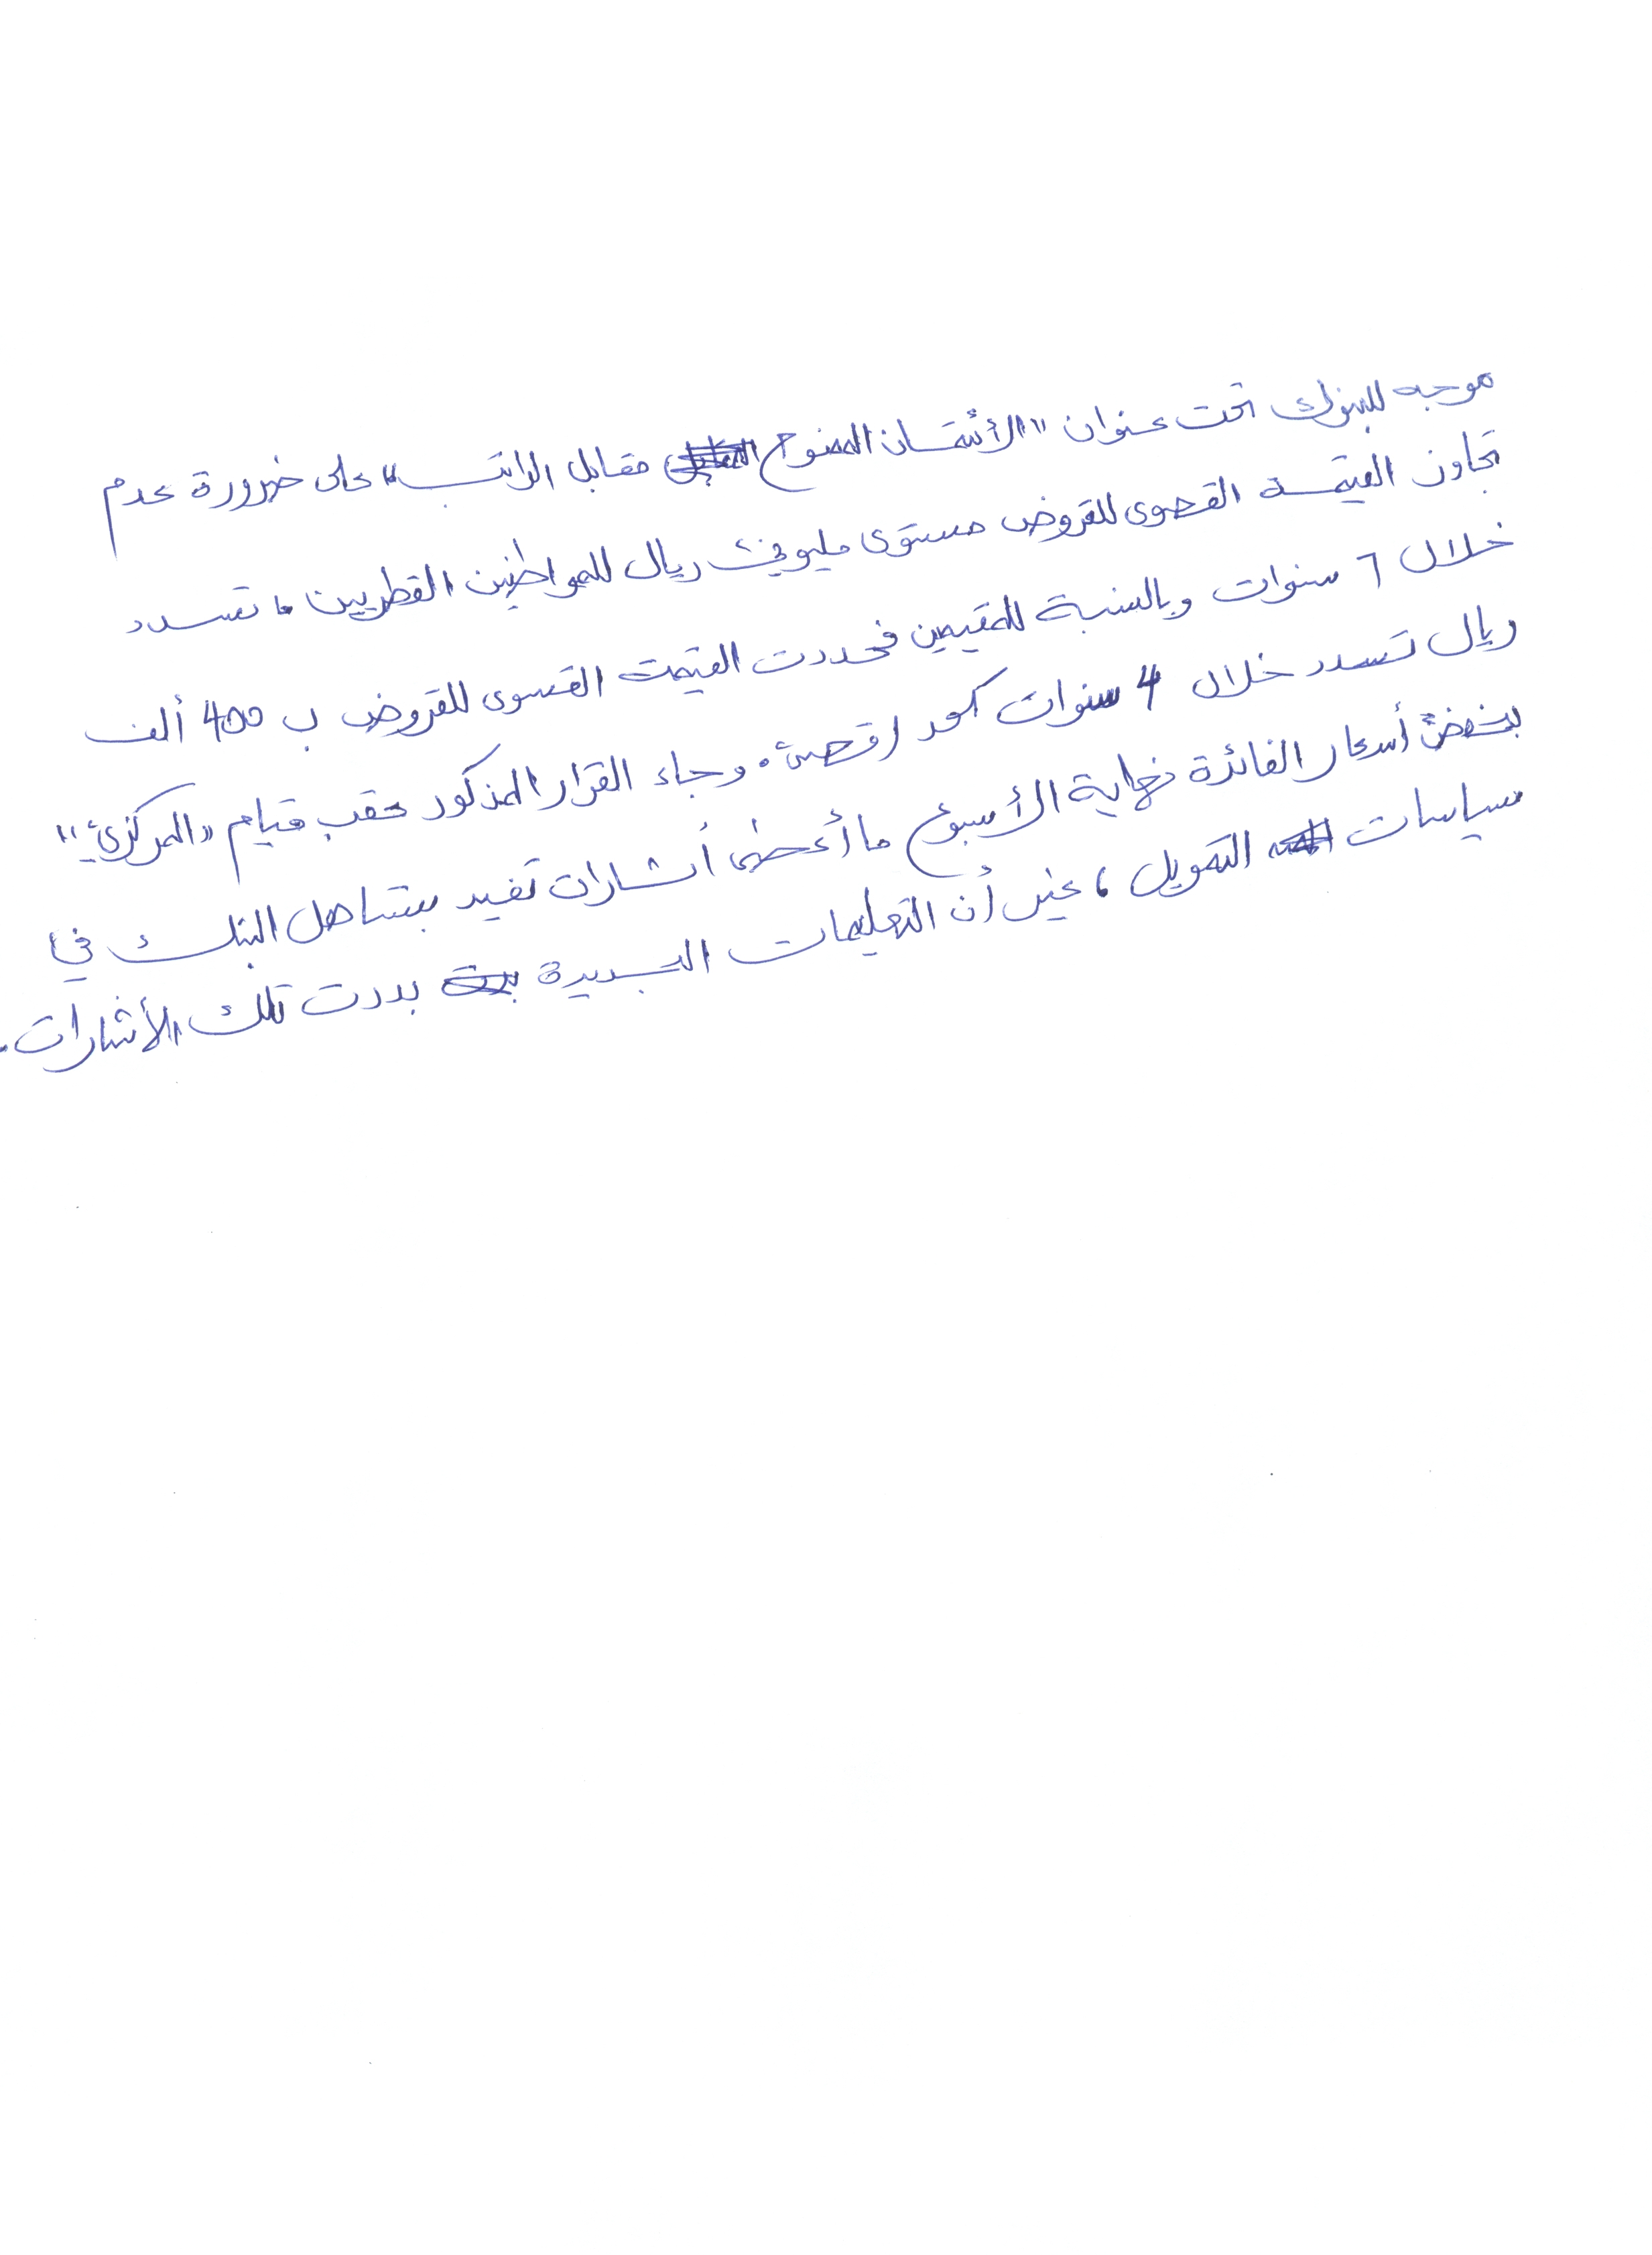 موجه للبنوك تحت عنوان "الأئتمان الممنوح مقابل الراتب" على ضرورة عدم
تجاوز القيمة القصوى للقروض مستوى مليوني ريال للمواطنين القطريين، تسدد
خلال 6 سنوات وبالنسبة للمقيمين فحددت القيمت القسوى للقروض ب 400 ألف
ريال تسدد خلال 4 سنوات كحد اقصى. وجاء القرار المذكور عقب قيام "المركزي"
بخفض أسعار الفائدة نهاية الأسبوع ما أعطى أشارات تفيد بتساهل البنك في
سياسات التمويل، غير أن التعليمات الجديدة بددت تلك الأشارات.